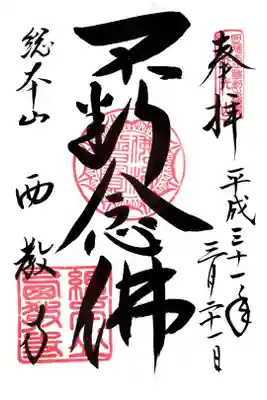 奉拝
平成三十一年
三月二十一日
不断念佛
総本山 西教寺